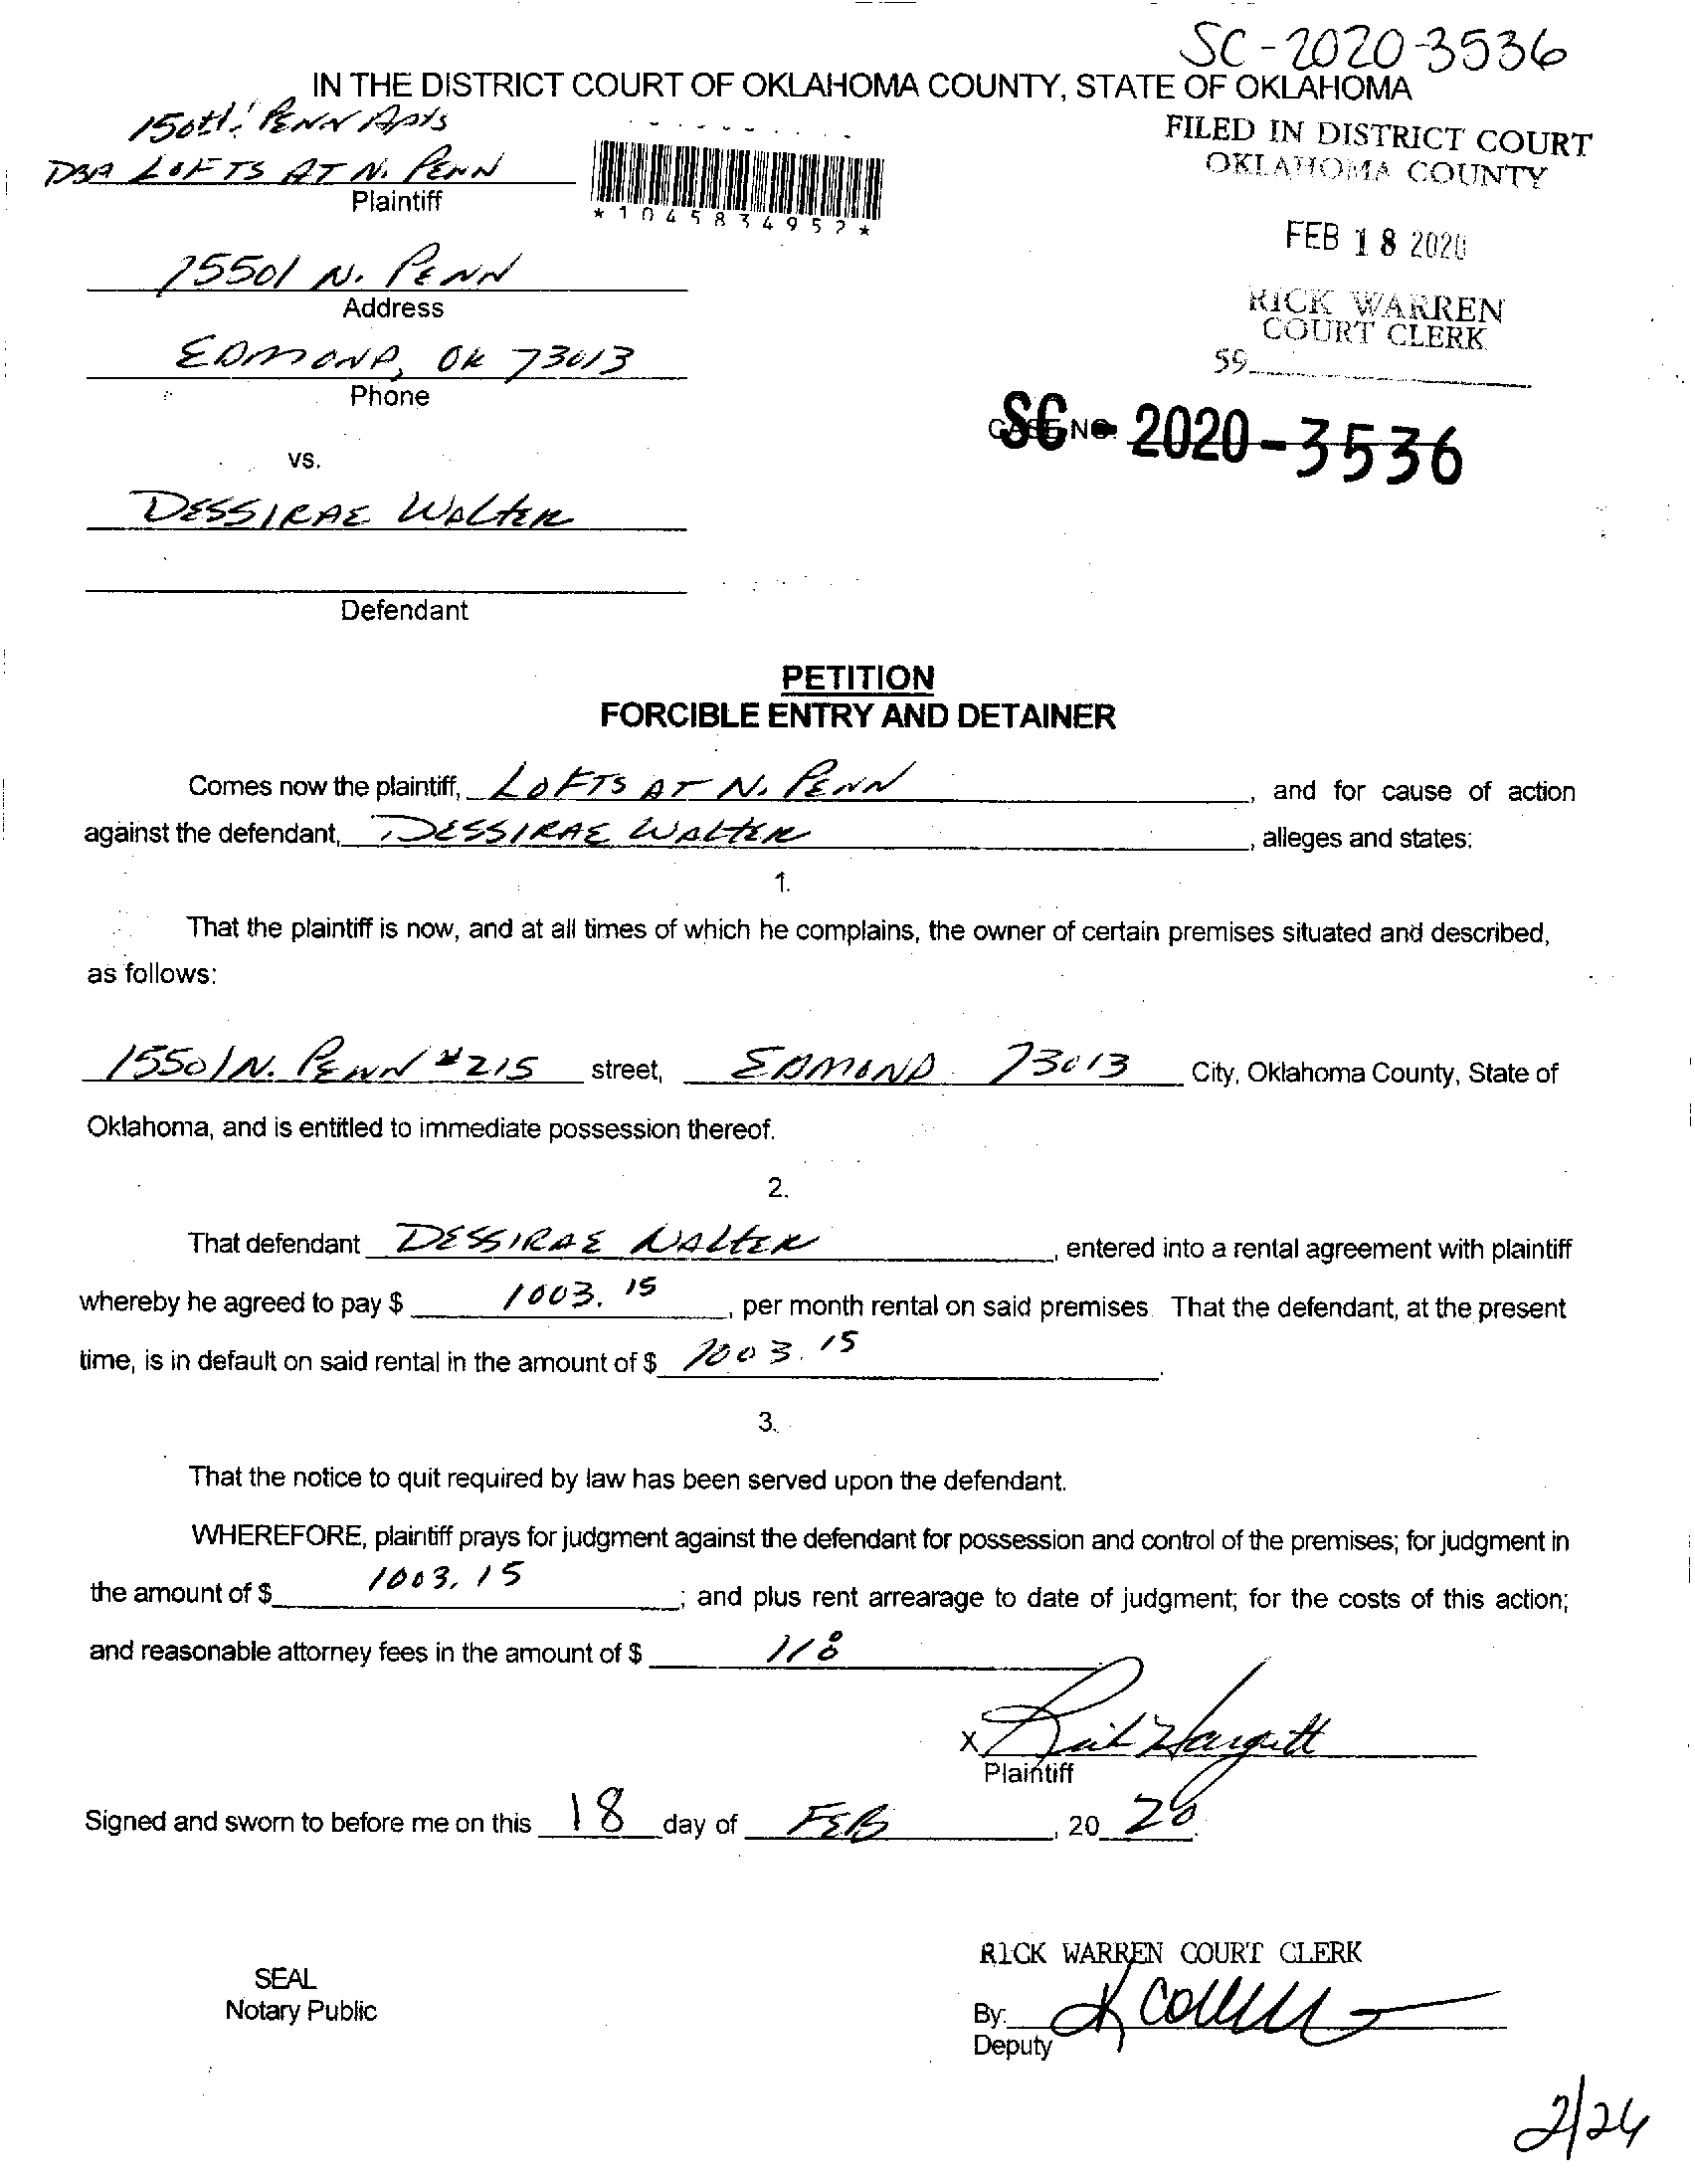 SC-2020-3536
IN THE DISTRICT COURT OF OKLAHOMA COUNTY, STATE OF OKLAHOMA
150th PENN Apts
DBA LOFTS AT N. PENN
Plaintiff
*1045834952*
FILED IN DISTRICT COURT
OKLAHOMA COUNTY
FEB 18 2020
RICK WARREN
COURT CLERK
59
15501 N. PENN
Address
EDMOND, OK 73013
Phone
CASE NO.
SC - 2020-3536
vs.
DESSIRAE WALTER
Defendant
PETITION
FORCIBLE ENTRY AND DETAINER
Comes now the plaintiff, LOFTS AT N. PENN, and for cause of action
against the defendant, DESSIRAE WALTER, alleges and states:
1.
That the plaintiff is now, and at all times of which he complains, the owner of certain premises situated and described,
as follows:
15501 N. PENN #215 street, EDMOND 73013 City, Oklahoma County, State of
Oklahoma, and is entitled to immediate possession thereof.
2.
That defendant DESSIRAE WALTER, entered into a rental agreement with plaintiff
whereby he agreed to pay $ 1003.15, per month rental on said premises. That the defendant, at the present
time, is in default on said rental in the amount of $ 1003.15.
3.
That the notice to quit required by law has been served upon the defendant.
WHEREFORE, plaintiff prays for judgment against the defendant for possession and control of the premises; for judgment in
the amount of $ 1003.15; and plus rent arrearage to date of judgment; for the costs of this action;
and reasonable attorney fees in the amount of $
X Rick Hargett
Plaintiff
Signed and sworn to before me on this 18 day of FEB, 20 20.
RICK WARREN COURT CLERK
SEAL
Notary Public
By:
Deputy
2/24